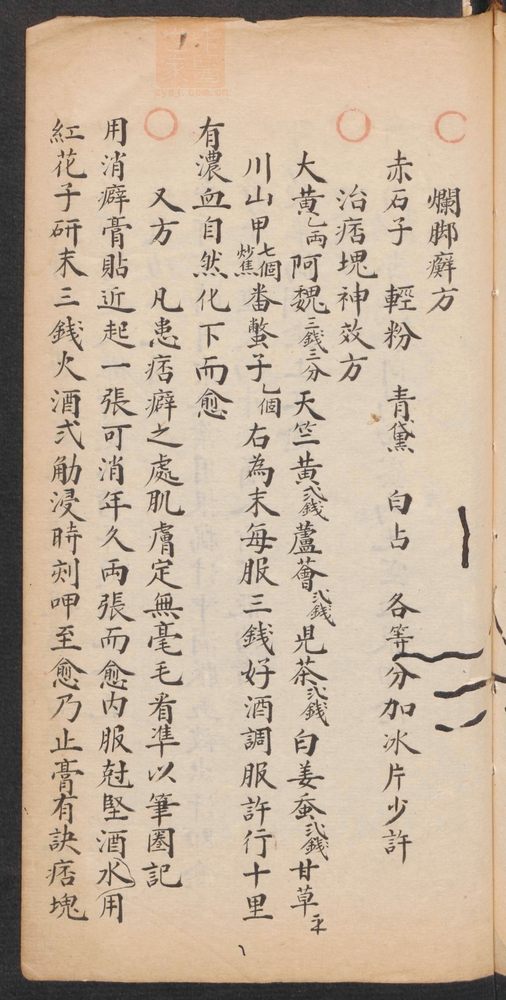 爛脚癬方
赤石子 輕粉 青黛 白占 各等分加冰片少許
治痞塊神效方
大黃乙両阿魏三錢三分天竺黃弍錢蘆薈弍錢児茶弍錢白姜蚕弍錢甘草
川山甲七個炒焦番鳖子乙個右為末每服三錢好酒調服許行十里
有濃血自然化下而愈
又方 凡患痞癖之處肌膚定無毫毛看準以筆圈記
用消癖膏貼近起一張可消年久両張而愈內服尅堅酒水用
紅花子研末三錢火酒弍觔浸時刻呷至愈乃止膏有訣痞塊